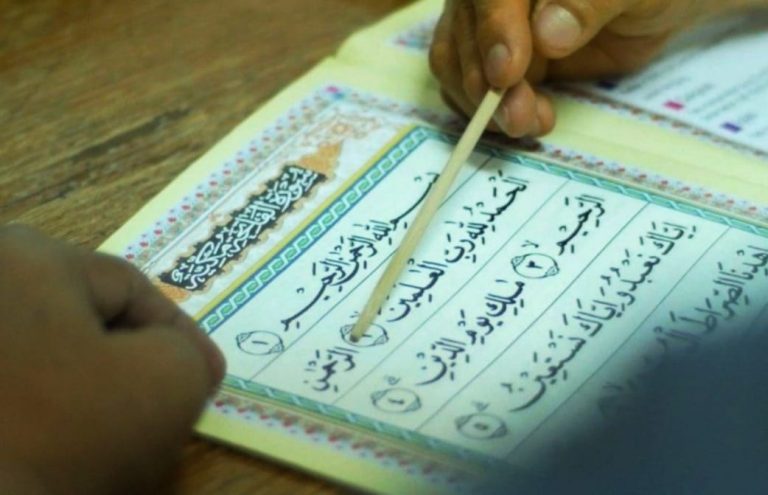 بِسْمِ اللّٰهِ الرَّحْمٰنِ الرَّحِيْمِ ١
اَلْحَمْدُ لِلّٰهِ رَبِّ الْعٰلَمِيْنَ ٢ الرَّحْمٰنِ
الرَّحِيْمِ ٣ مٰلِكِ يَوْمِ الدِّيْنِ ٤
اِيَّاكَ نَعْبُدُ وَاِيَّاكَ نَسْتَعِيْنُ ٥
اِهْدِنَا الصِّرَاطَ